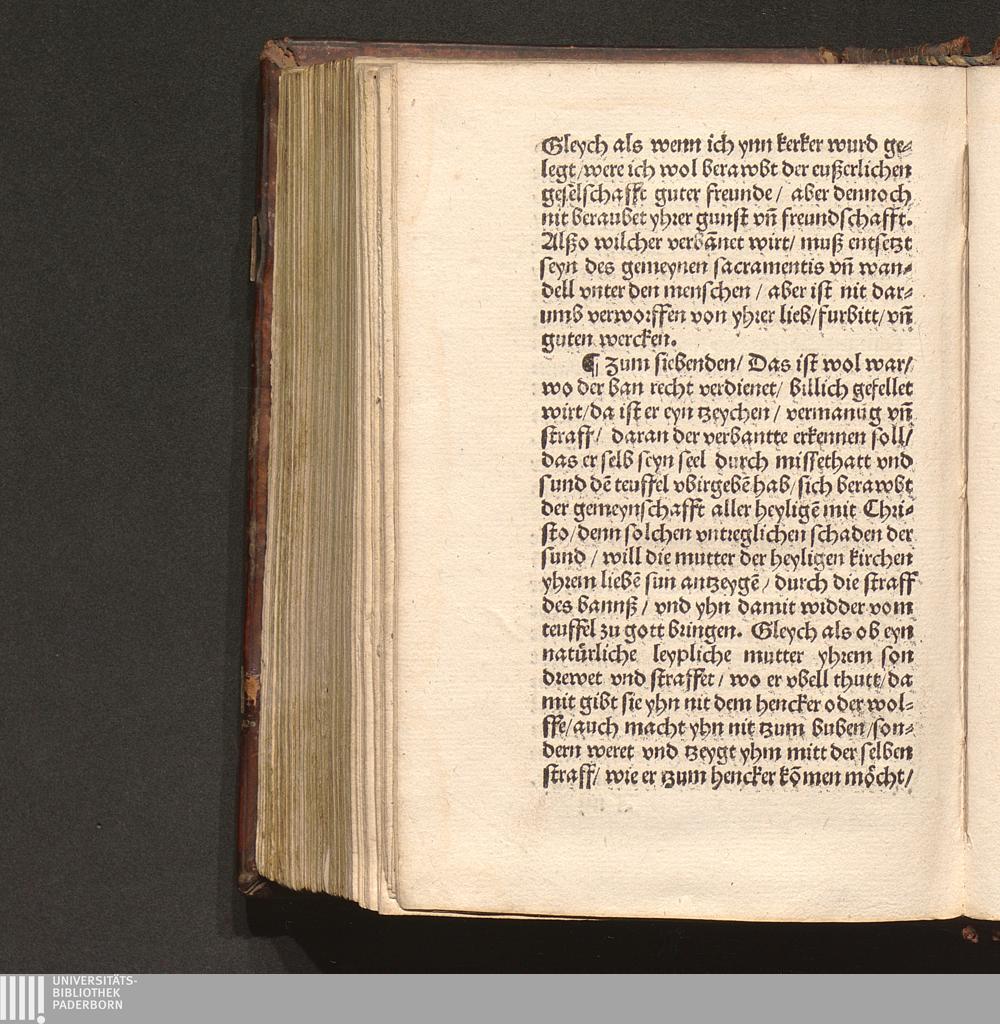 Gleych als wenn ich ynn kerker wurd ge⸗
legt/were ich wol berawbt der eußerlichen
geselschafft guter freunde/ aber dennoch
nit beraubet yhrer gunst vñ freundschafft.
Alßo wilcher verbãnet wirt/ muß entsetzt
seyn des gemeynen sacramentis vñ wan⸗
dell vnter den menschen / aber ist nit dar⸗
umb verworffen von yhrer lieb/furbitt/ vñ
guten wercken.
¶ Zum siebenden/ Das ist wol war/
wo der ban recht verdienet/ billich gefellet
wirt/da ist er eyn tzeychen / vermanũg vñ
straff/ daran der verbantte erkennen soll/
das er selb seyn seel durch missethatt vnd
sund dẽ teuffel vbirgebẽ hab/sich berawbt
der gemeynschafft aller heyligẽ mit Chri⸗
sto/denn solchen vntreglichen schaden der
sund / will die mutter der heyligen kirchen
yhrem liebẽ sun antzeygẽ/ durch die straff
des bannß / vnd yhn damit widder vom
teuffel zu gott bringen. Gleych als ob eyn
natürliche leypliche mutter yhrem son
drewet vnd straffet / wo er vbell thutt/da
mit gibt sie yhn nit dem hencker oder wol⸗
ffe/auch macht yhn nit tzum buben/son⸗
dern weret vnd tzeygt yhm mitt der selben
straff/ wie er tzum hencker kõmen möcht/
UNIVERSITÄTS-
BIBLIOTHEK
PADERBORN